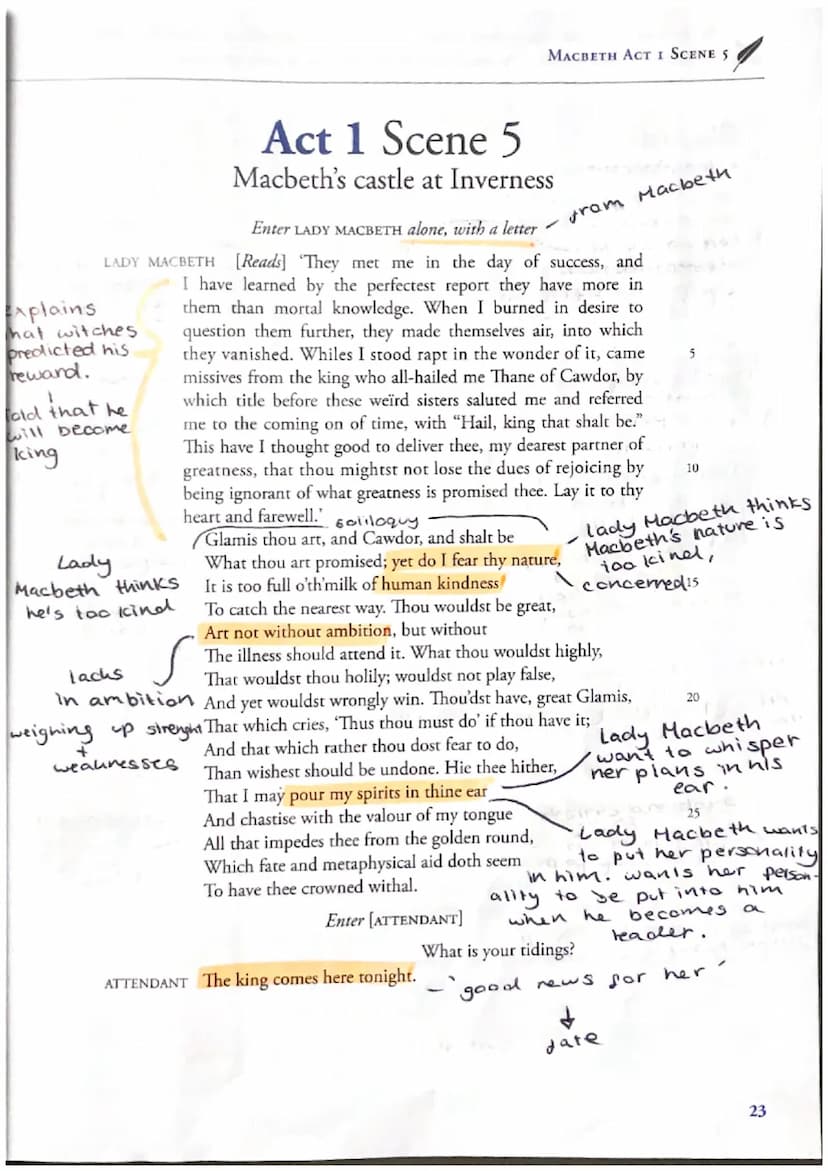 MACBETH ACT 1 SCENE 5
Act 1 Scene 5
Macbeth's castle at Inverness
from Macbeth
Enter LADY MACBETH alone, with a letter
LADY MACBETH [Reads] 'They met me in the day of success, and
I have learned by the perfectest report they have more in
them than mortal knowledge. When I burned in desire to
question them further, they made themselves air, into which
they vanished. Whiles I stood rapt in the wonder of it, came 5
missives from the king who all-hailed me Thane of Cawdor, by
which title before these weïrd sisters saluted me and referred
me to the coming on of time, with “Hail, king that shalt be.”
This have I thought good to deliver thee, my dearest partner of
greatness, that thou mightst not lose the dues of rejoicing by 10
being ignorant of what greatness is promised thee. Lay it to thy
heart and farewell.'
Explains
that witches
predicted his
reward.
Told that he
will become
king
soliloquy
Glamis thou art, and Cawdor, and shalt be
What thou art promised; yet do I fear thy nature,
It is too full o'th'milk of human kindness 15
To catch the nearest way. Thou wouldst be great,
Art not without ambition, but without
The illness should attend it. What thou wouldst highly,
That wouldst thou holily; wouldst not play false,
And yet wouldst wrongly win. Thou'dst have, great Glamis, 20
That which cries, 'Thus thou must do' if thou have it;
And that which rather thou dost fear to do,
Than wishest should be undone. Hie thee hither,
That I may pour my spirits in thine ear
And chastise with the valour of my tongue 25
All that impedes thee from the golden round,
Which fate and metaphysical aid doth seem
To have thee crowned withal.
lady Macbeth thinks
Macbeth's nature is
too kind,
concerned
Lady
Macbeth thinks
he's too kind
lacks
in ambition
weighing up strenght
+
weaknesses
Lady Macbeth
want to whisper
her plans in his
ear.
Lady Macbeth wants
to put her personality
in him. wants her person-
ality to be put into him
when he becomes a
leader.
Enter [ATTENDANT]
What is your tidings?
ATTENDANT The king comes here tonight.
– 'good news for her'
fate
23